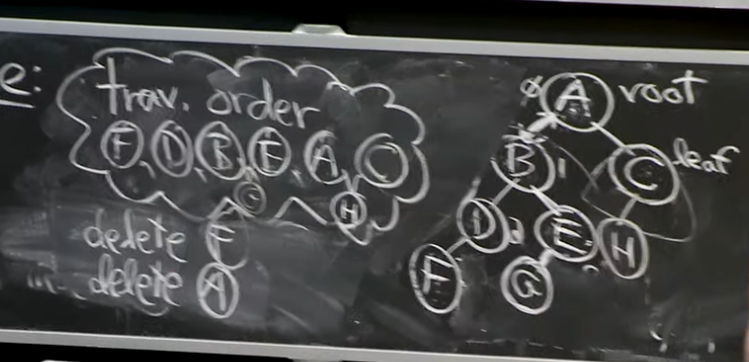 e:
trav. order
F, D, B, E, A, C
G H
delete F
delete A
A root
B C leaf
D E H
F G